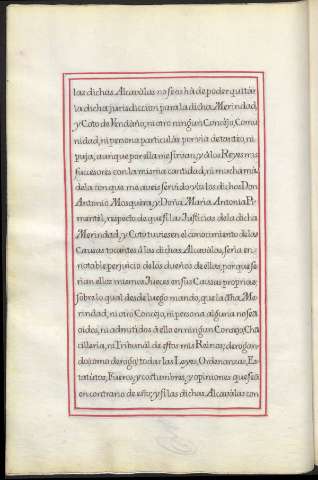 las dichas Alcavàlas no seos hà de poder quitàr
la dicha jurisdiccion para la dicha Merindad,
y Coto de Vendaño, ni otro ningun Concejo, Comu
nidad, ni persona particulàr por via de tantèo, ni
puja, aunque por ella me sirvan, y à los Reyes mis
succesores con la misma cantidad, ni mucha mà
de la con que me aveis servido vòs los dichos Don
Antonio Mosquèra, y Doña Maria Antonia Pi-
mentèl, respecto de que si las Justicias de la dicha
Merindad, y Coto tuviesen el conocimiento de las
Causas tocantes à las dichas Alcavàlas, serìa en
notable perjuicio de los dueños de ellas, porque se
rìan ellos mismos Jueces en sus Causas proprias:
sobre lo qual desde luego mando, que la dha. Me
rindad, ni otro Concejo, ni persona alguna no seà
oìdos, ni admitidos à ello en ningun Concejo, Chā
cilleria, ni Tribunàl de estos mis Reinos; derogan-
do (como derògo) todas las Leyes, Ordenanzas, Es-
tatùtos, Fueros, y costumbres, y opiniones que seà
en contrario de esto; y si las dichas Alcavàlas con